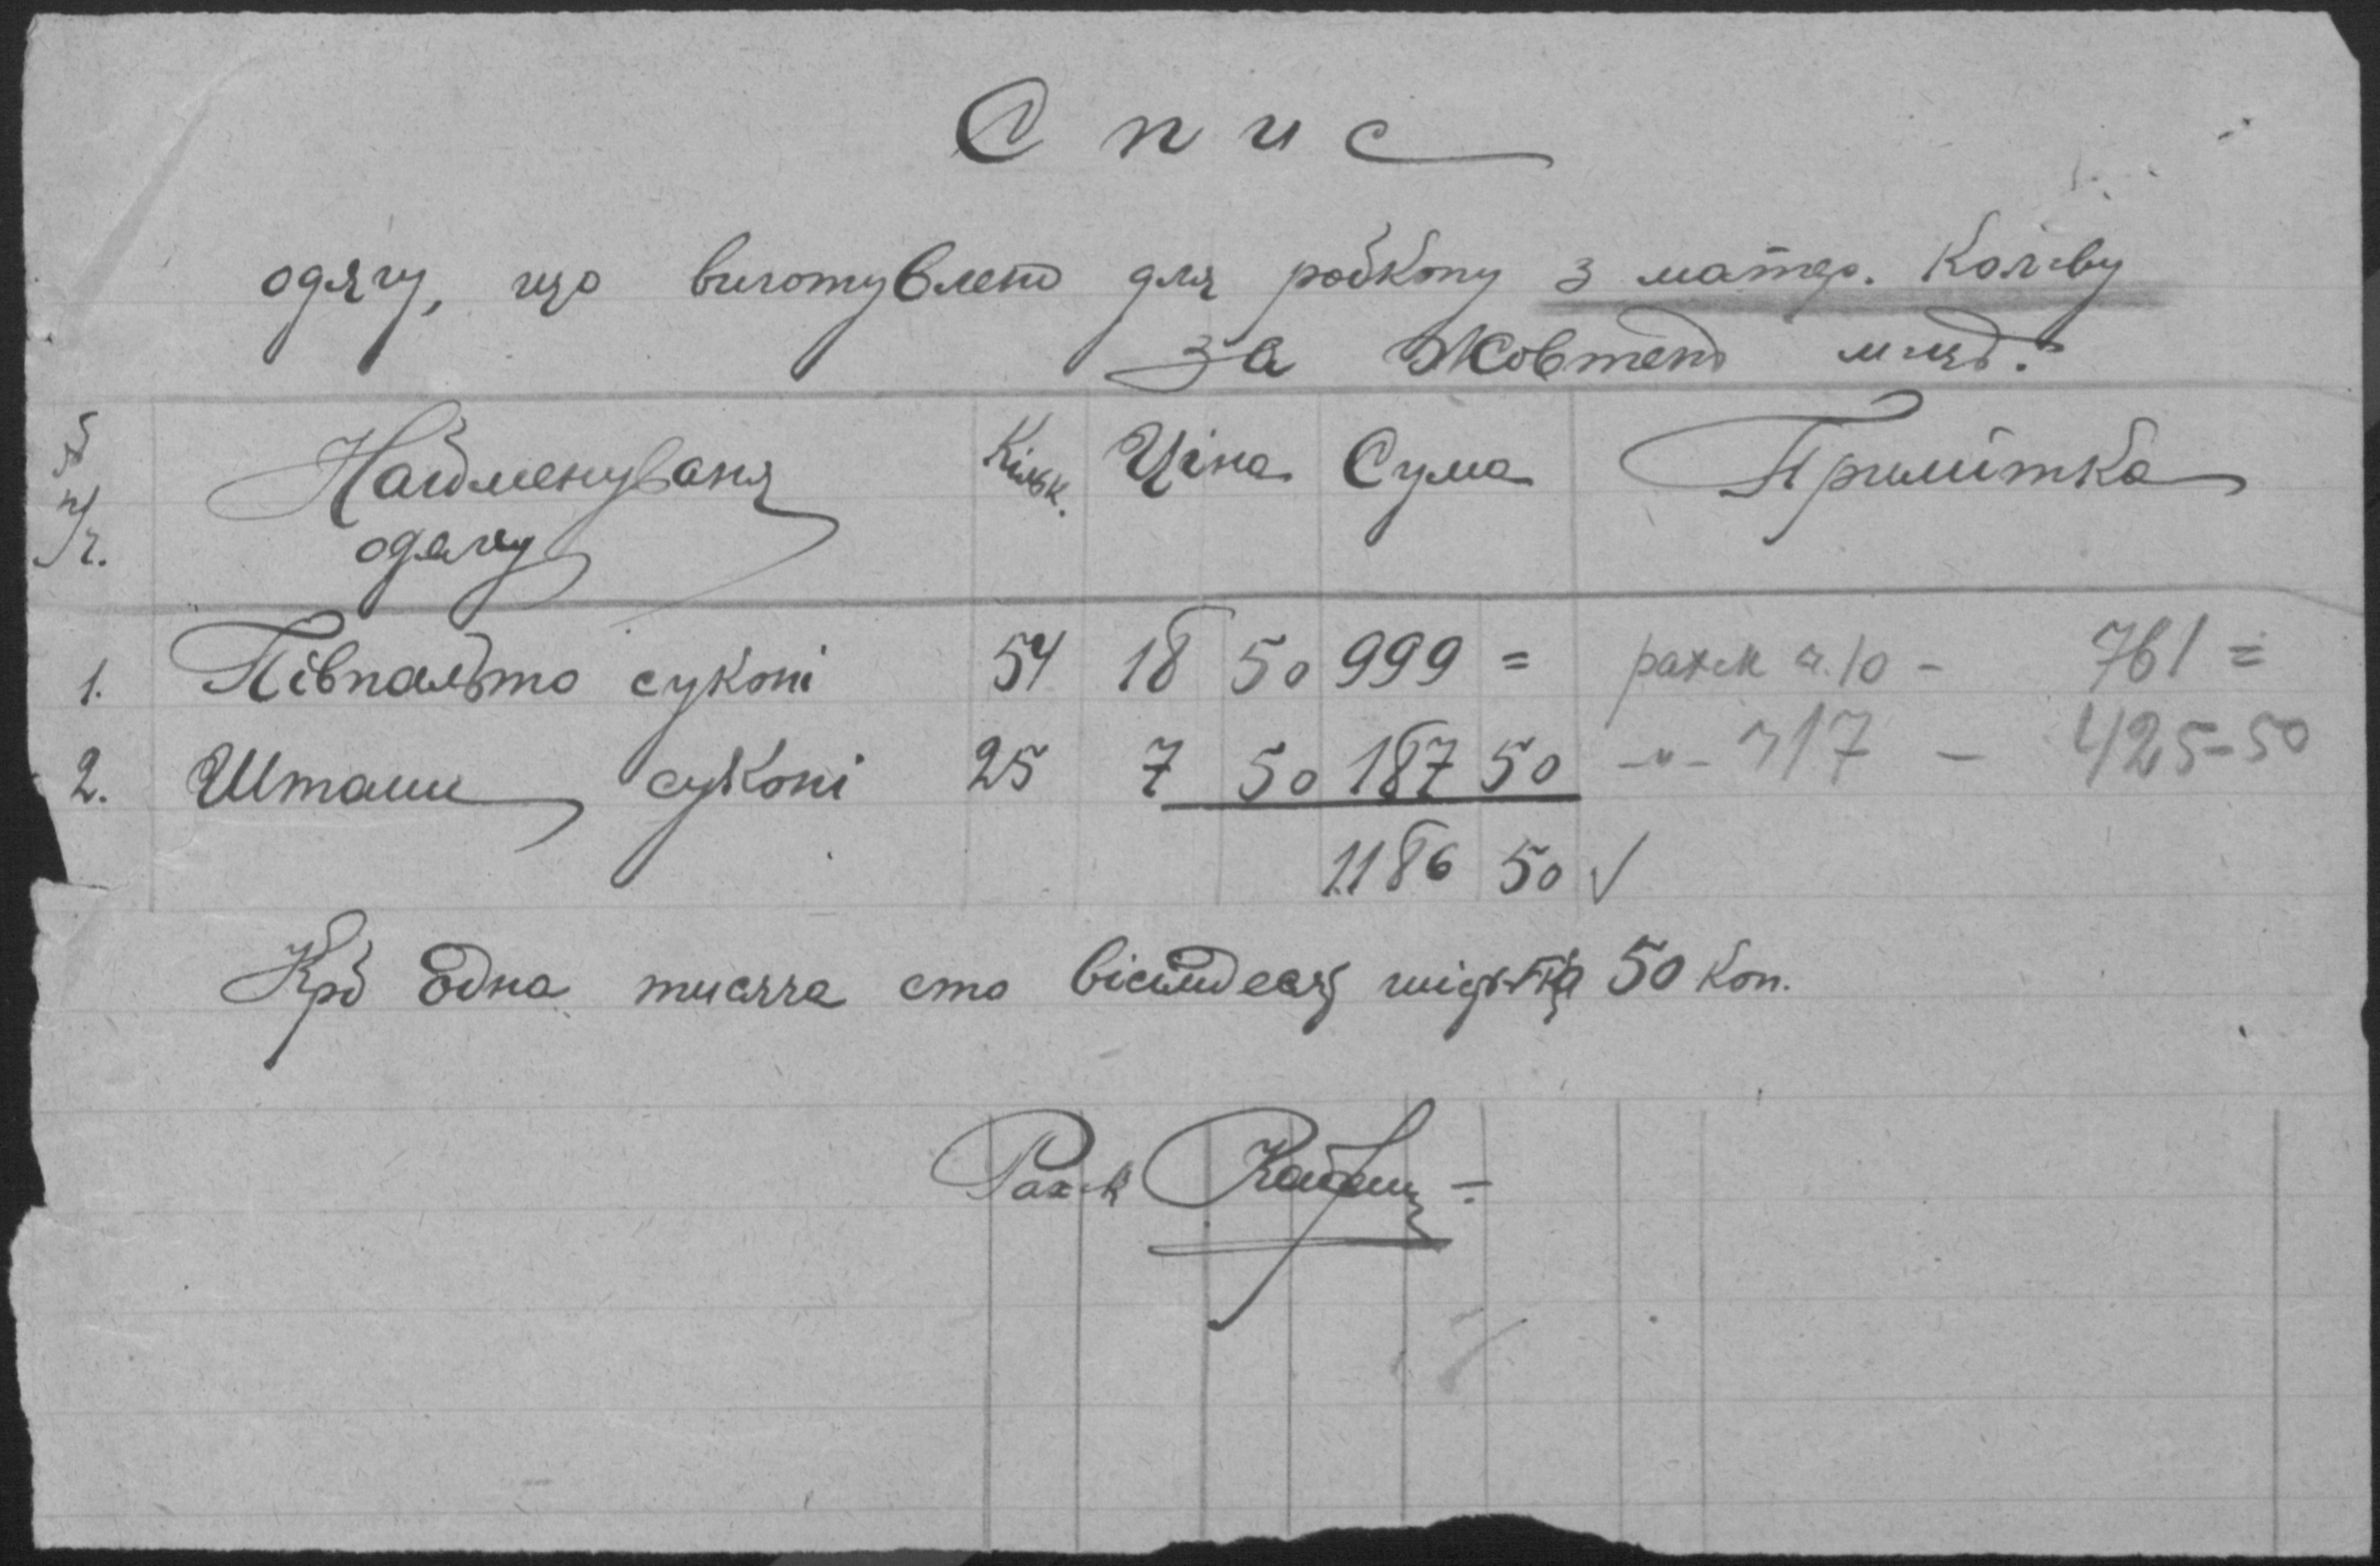 Спис
одягу, що виготувлено для робкопу з матер. Кол-ву
за Жовтень м-ць.
№ п/ч. Найменуваня одягу Кільк. Ціна Сума Примітка
1. Півпальто суконі 54 18 50 999 = рах-к ч. 10 - 761 =
2. Штани суконі 25 7 50 187 50 -"- 17 - 425-50
1186 50 √
Крб Одна тисяча сто вісімдесят шість 50 коп.
Рах-к